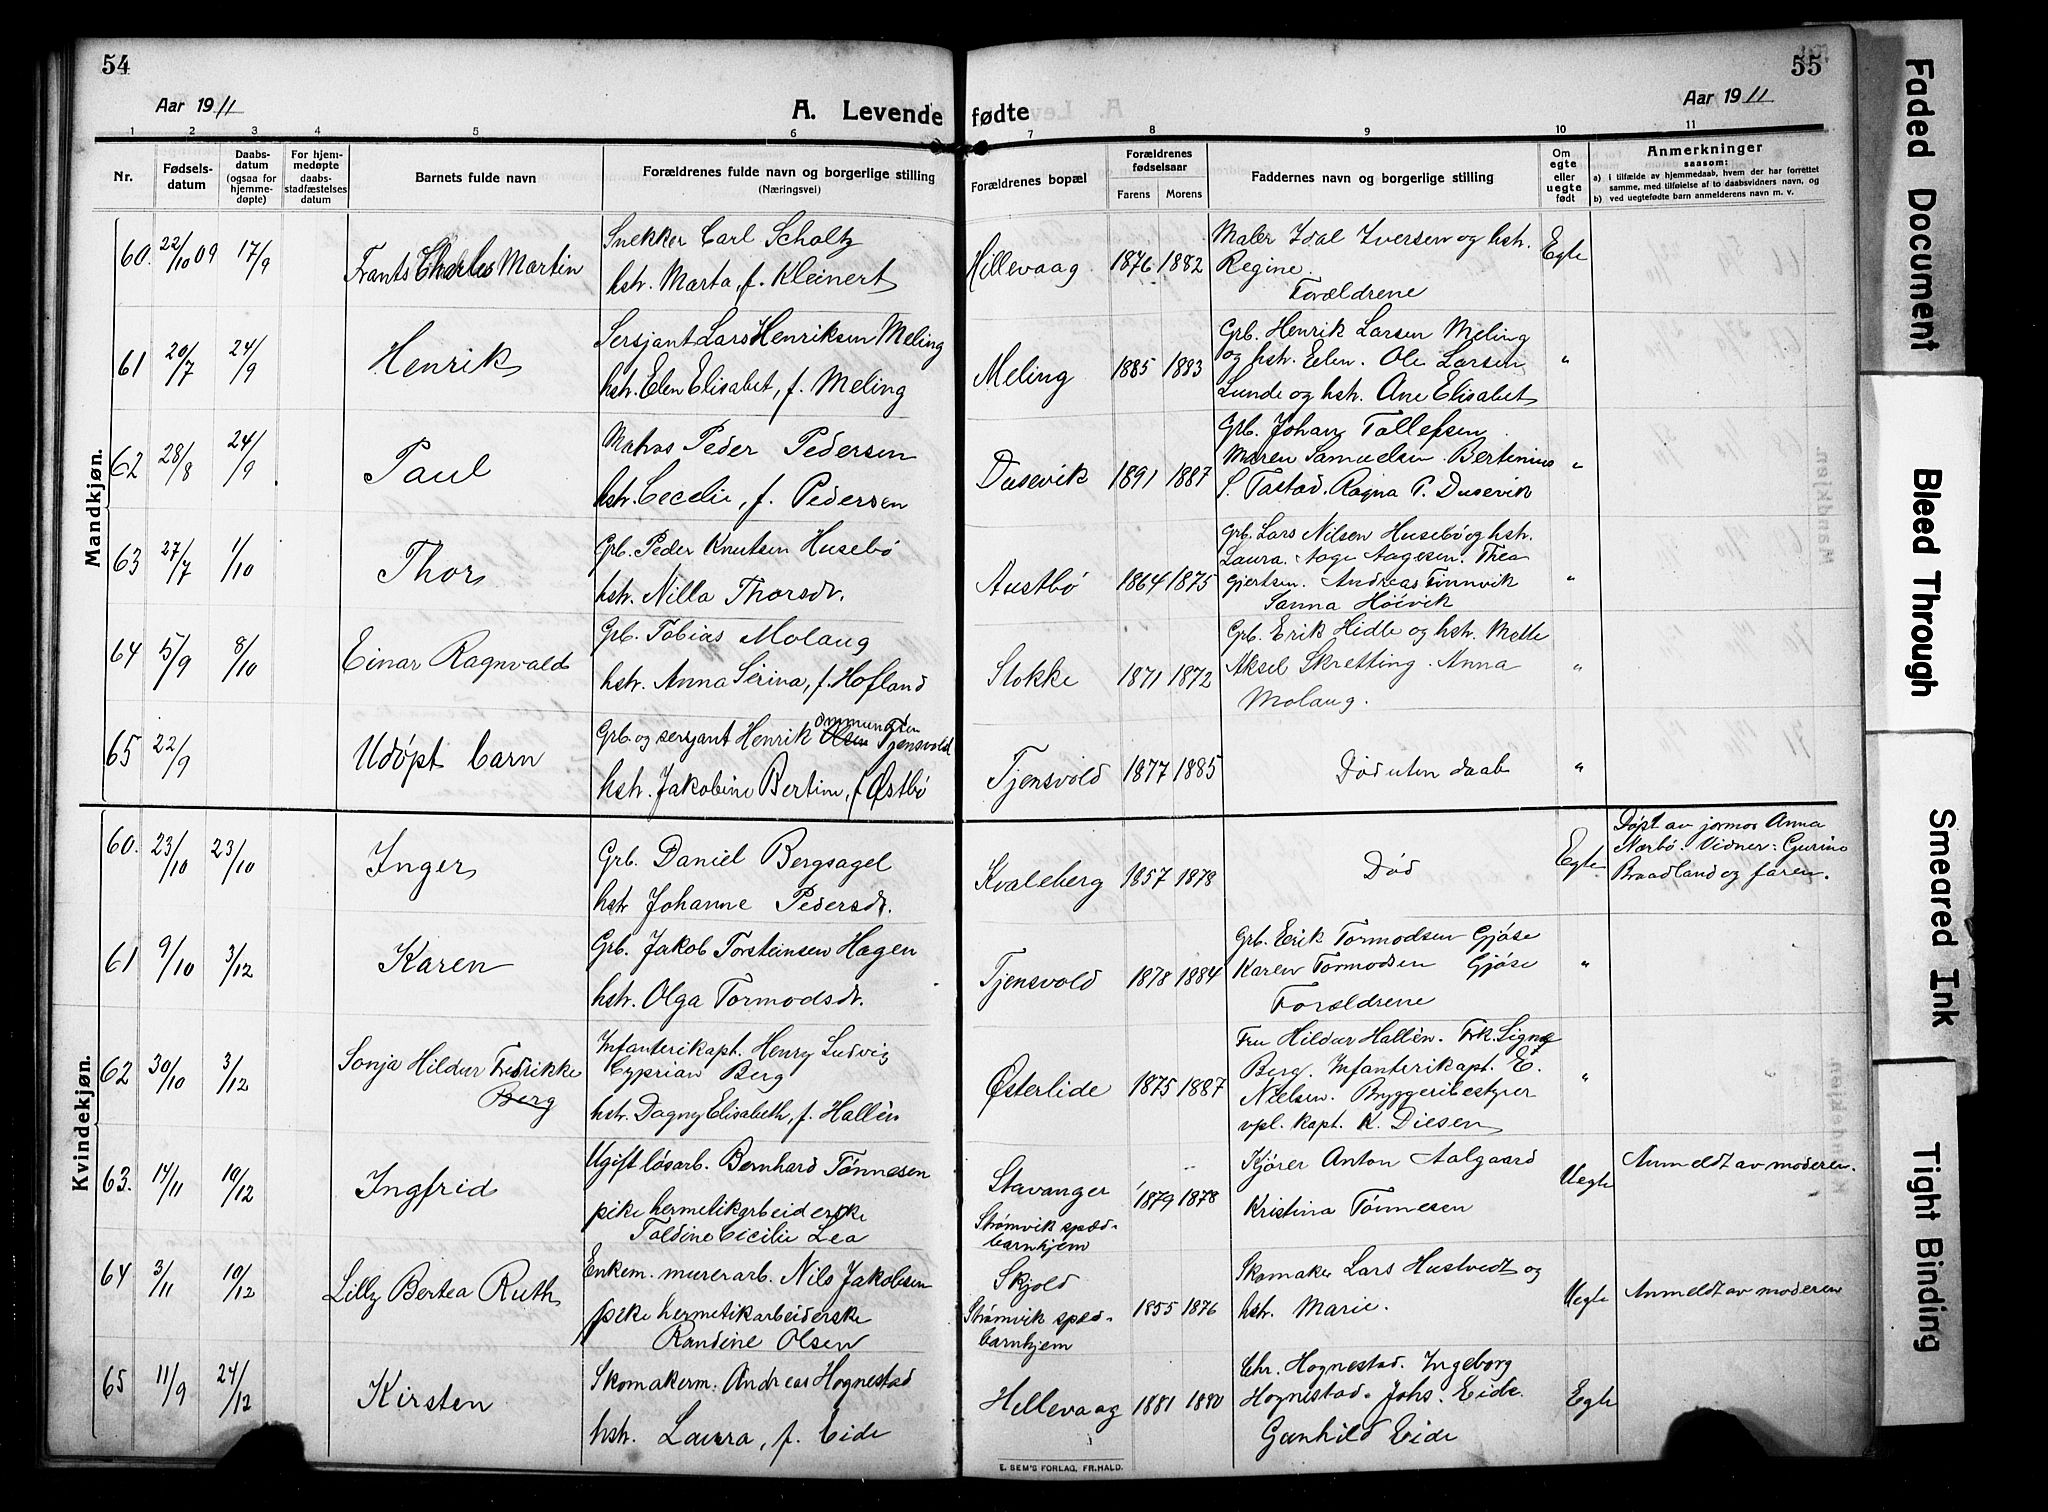 54
Aar 1911
A. Levende
1 2 3 4 5 6
Nr.
Fødsels-
datum
Daabs-
datum
(ogsaa for
hjemme-
døpte)
For hjem-
medøpte
daabs-
stadfæstelses
datum
Barnets fulde navn
Forældrenes fulde navn og borgerlige stilling
(Næringsvei)
Mandkjøn.
60. 22/10 09 17/9 Frants Charles Martin
Snekker Carl Scholtz
hstr. Marta, f. Kleinert
61 20/7 24/9 Henrik
Sersjant Lars Henriksen Meling
hstr. Elen Elisabet, f. Meling
62 28/8 24/9 Paul
Matros Peder Pedersen
hstr. Cecelie, f. Pedersen
63 27/7 1/10 Thor
Grb. Peder Knutsen Husebö
hstr. Nilla Thorsdr.
64 5/9 8/10 Einar Ragnvald
Grb. Tobias Molaug
hstr. Anna Serina, f. Hofland
65 22/9 Udøpt barn
Ommundsen
Grb. og serjant Henrik Olsen Tjensvold
hstr. Jakobine Bertine, f. Østbö
Kvindekjøn.
60. 23/10 23/10 Inger
Grb. Daniel Bergsagel
hstr Johanne Pedersdr.
61 9/10 3/12 Karen
Grb. Jakob Torsteinsen Hagen
hstr. Olga Tormodsdr.
62 30/10 3/12 Sonja Hildur Fredrikke
Berg
Infanterikapt. Henry Ludvig
Cyprian Berg
hstr. Dagny Elisabeth, f. Hallèn
63. 14/11 10/12 Ingfrid
Ugift løsarb. Bernhard Tönnesen
pike hermetikarbeiderske
Taldine Cicilie Lea
64 3/11 10/12 Lilly Bertea Ruth
Enkem. murerarb. Nils Jakobsen
pike hermetikarbeiderske
Randine Olsen
65 11/9 24/12 Kirsten
Skomakerm. Andreas Hognestad
hstr. Laura, f. Eide
55
Aar 1911
fødte
7 8 9 10 11
Forældrenes bopæl
Forældrenes
fødselsaar
Farens Morens
Faddernes navn og borgerlige stilling
Om
egte
eller
uegte
født
Anmerkninger
saasom:
a) i tilfælde av hjemmedaab, hvem der har forrettet
samme, med tilføielse av to daabsvidners navn, og
b) ved uegtefødte barn anmelderens navn m. v.
Hillevaag 1876 1882
Maler Idal Iversen og hstr.
Regine.
Forældrene
Egte
Meling 1885 1883
Grb. Henrik Larsen Meling
og hstr. Elen. Ole Larsen
Lunde og hstr. Ane Elisabet
"
Dusevik 1891 1887
Grb. Johan Tollefsen
Maren Samuelsen. Bertinius
S. Tastad. Ragna P. Dusevik
"
Austbö 1864 1875
Grb. Lars Nilsen Husebö og hstr.
Laura. Aage Aagesen. Thea
Gjertsen. Andreas Finnvik
Sanna Höivik
"
Stokke 1871 1872
Grb. Erik Hidle og hstr. Mette
Aksel Skretting. Anna
Molaug.
"
Tjensvold 1877 1885
Død uten daab
"
Kvaleberg 1857 1878
Død
Egte
Døpt av jormor Anna
Nærbö. Vidner: Gurine
Braadland og faren.
Tjensvold 1878 1884
Grb. Erik Tormodsen Gjöse
Karen Tormodsen Gjöse
Forældrene
"
Østerlide 1875 1887
Fru Hildur Hallèn. Frk. Signe
Berg. Infanterikapt. E.
Nielsen. Bryggeribestyrer
vpl. kapt. K. Diesen
"
Stavanger
Strömvik spæd-
barnhjem
1879 1878
Kjörer Anton Aalgaard
Kristina Tönnesen
Uegte
Anmeldt av moderen.
Skjold
Strömvik spæd-
barnhjem
1855 1876
Skomaker Lars Hustvedt og
hstr. Marie.
Uegte
Anmeldt av moderen
Hillevaag 1881 1880
Chr. Hognestad. Ingeborg
Hognestad. Johs. Eide.
Gunhild Eide
Egte
E. SEM'S FORLAG, FR.HALD.
Faded Document
Bleed Through
Smeared Ink
Tight Binding